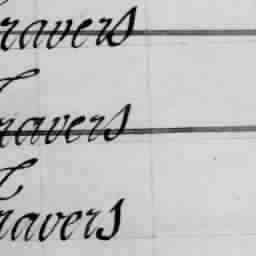 ravers
ravers
ravers